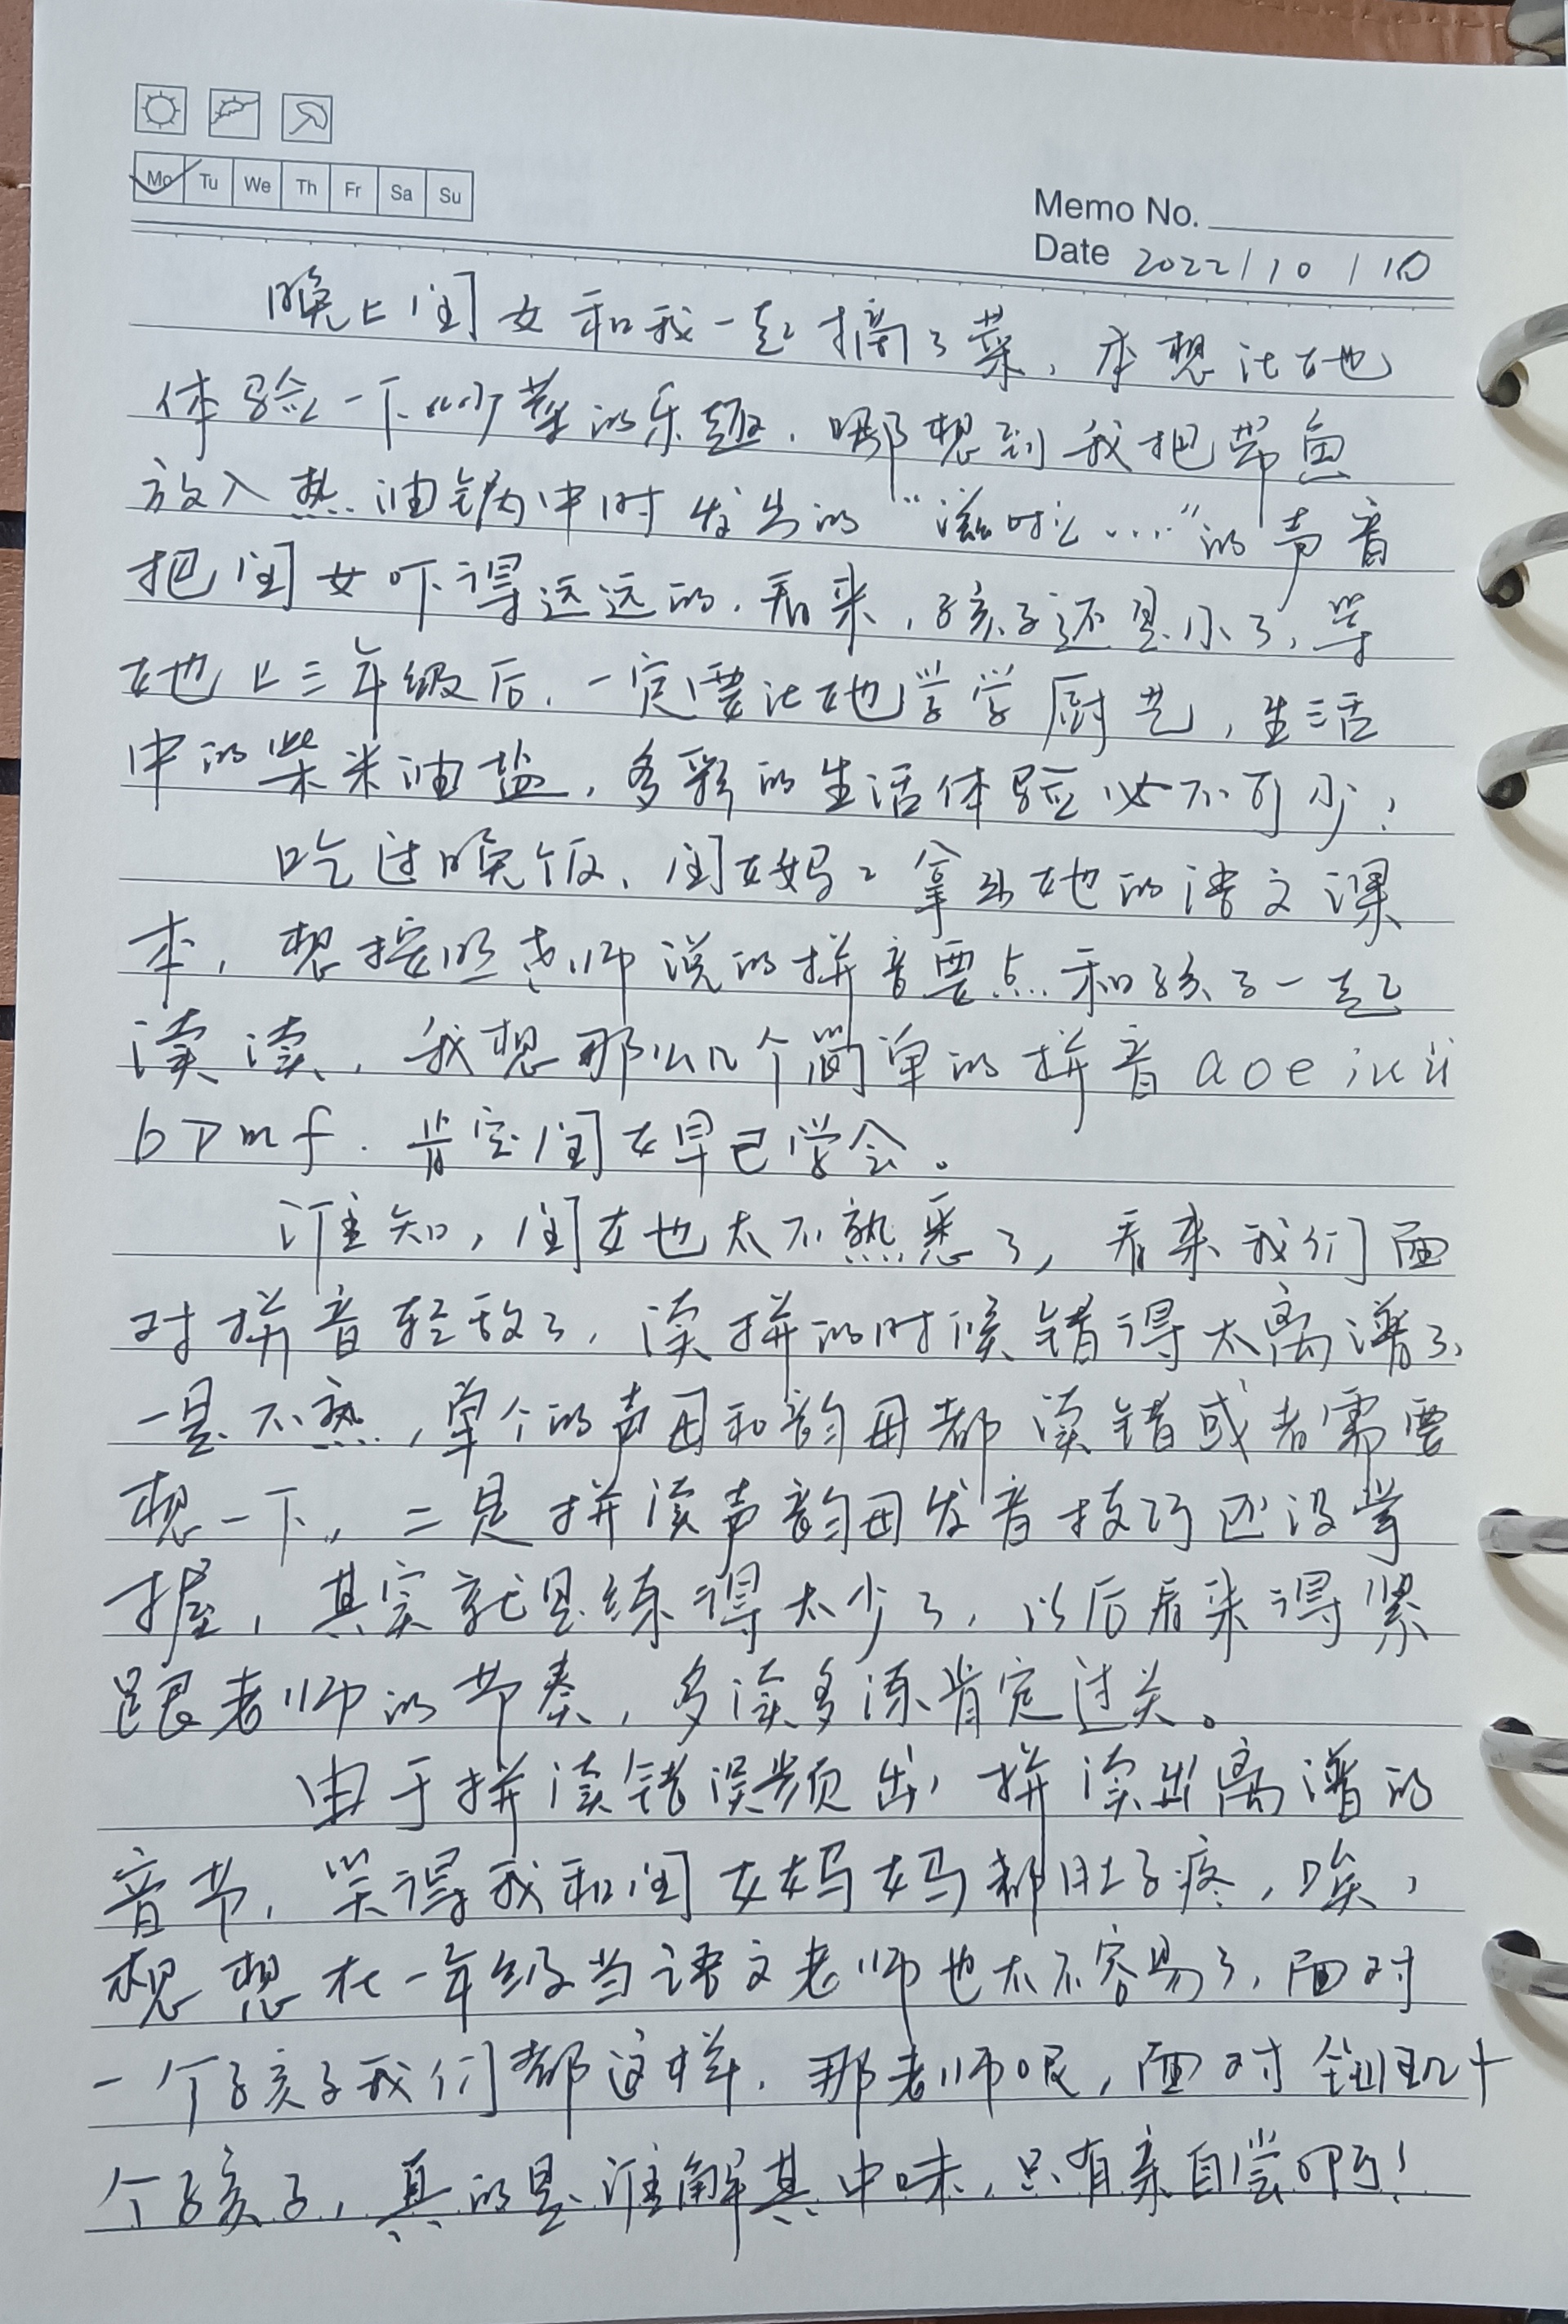 Mo Tu We Th Fr Sa Su
Memo No.
Date 2022/10/10
晚上闺女和我一起摘了菜，本想让她
体验一下炒菜的乐趣，哪想到我把带鱼
放入热油锅中时发出的“滋啦…”的声音
把闺女吓得远远的，看来，孩子还是小了，等
她上三年级后，一定要让她学学厨艺，生活
中的柴米油盐，多彩的生活体验必不可少！
吃过晚饭，闺女妈妈拿出她的语文课
本，想按照老师说的拼音要点和孩子一起
读读，我想那么几个简单的拼音aoeiuü
bpmf.肯定闺女早已学会。
谁知，闺女也太不熟悉了，看来我们面
对拼音轻敌了，读拼的时候错得太离谱了，
一是不熟，单个的声母和韵母都读错或者需要
想一下，二是拼读声韵母发音技巧还没掌
握，其实就是练得太少了，以后看来得紧
跟老师的节奏，多读多练肯定过关。
由于拼读错误频出，拼读出离谱的
音节，笑得我和闺女妈妈都肚子疼，唉，
想想在一年级当语文老师也太不容易了，面对
一个孩子我们都这样，那老师呢，面对全班几十
个孩子，真的是谁解其中味，只有亲自尝啊！